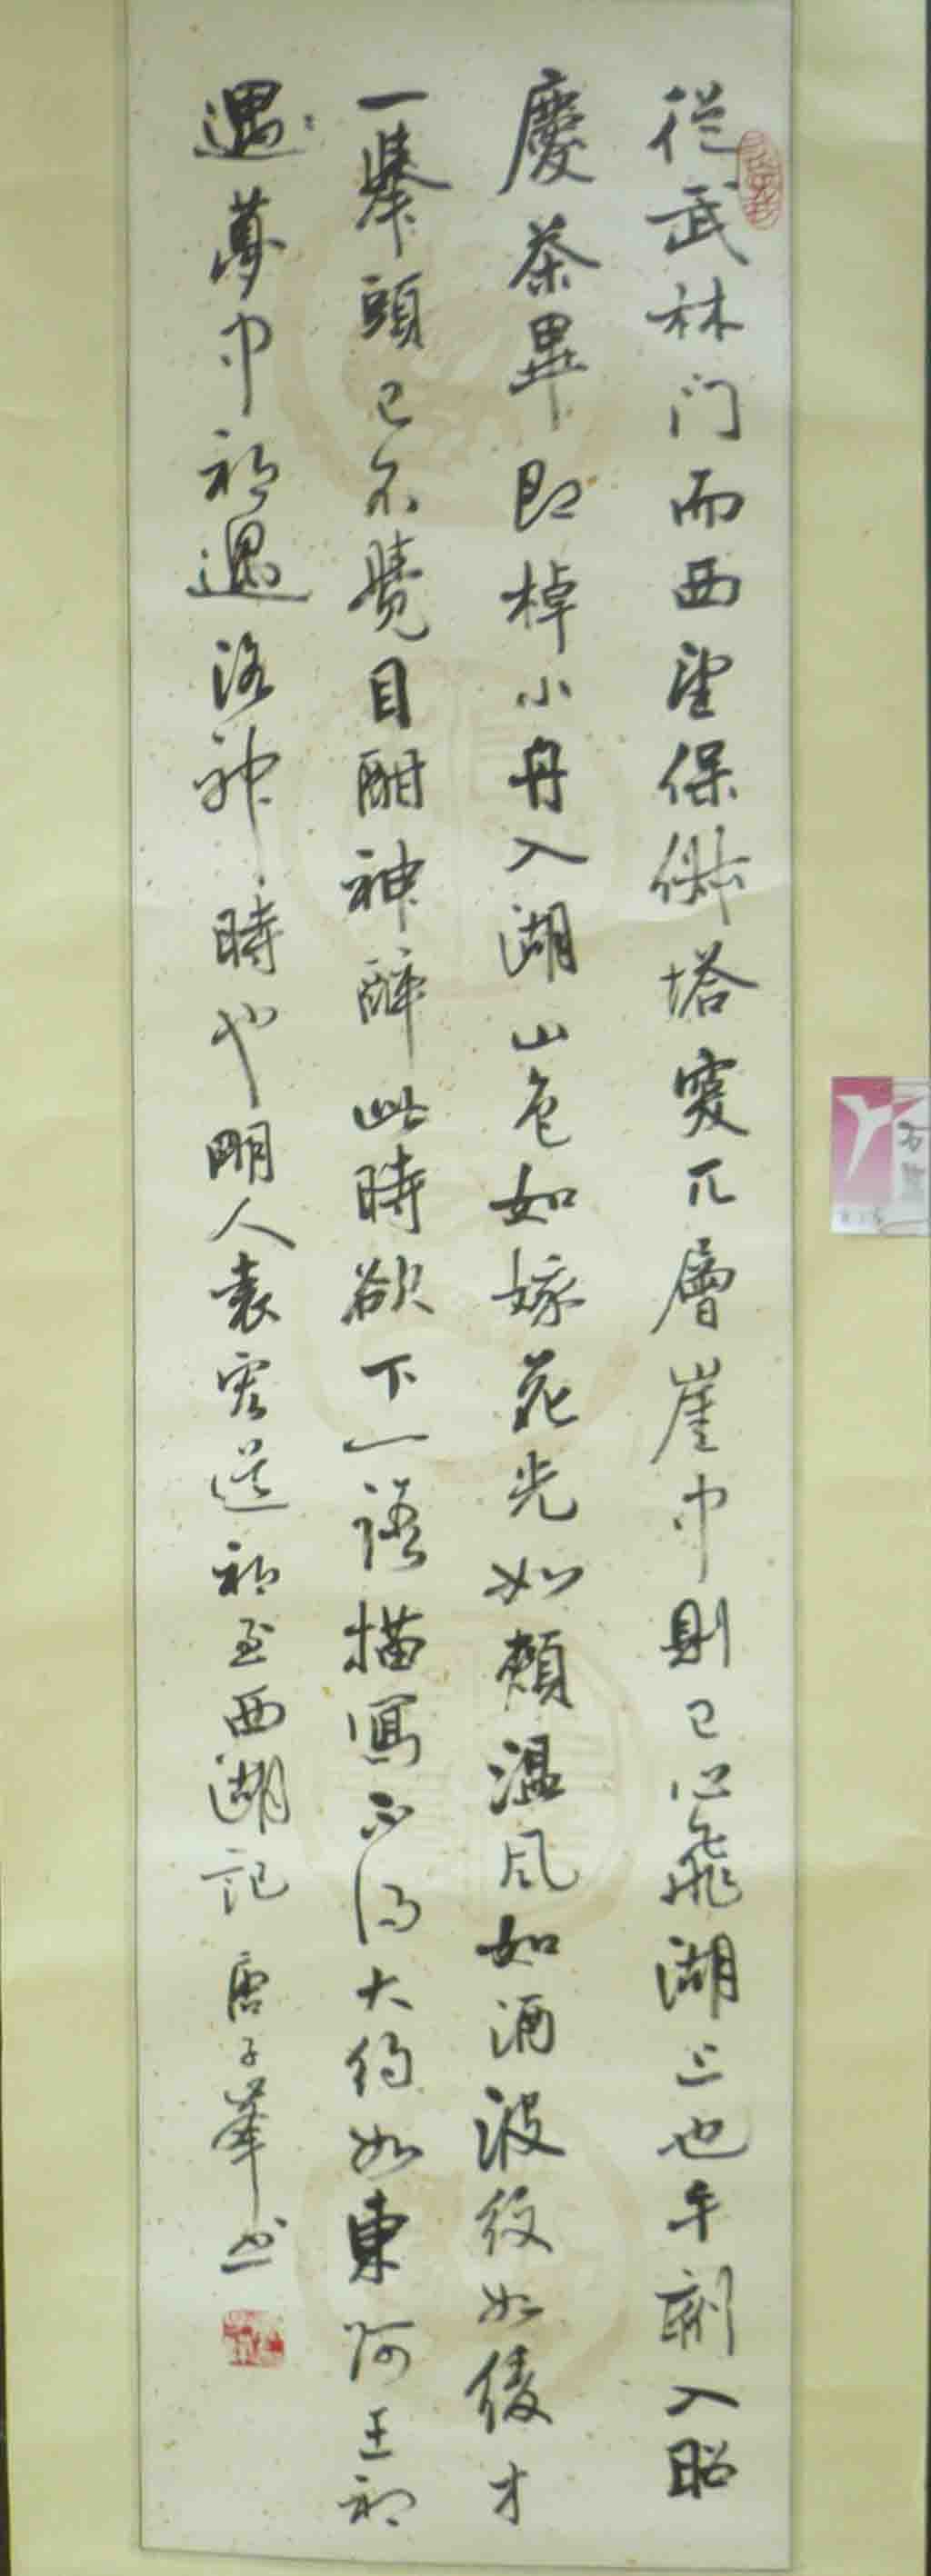 從武林门而西望保俶塔突兀層崖中則已心飛湖上也午刻入昭
慶茶畢即棹小舟入湖山色如娥花光如頰温風如酒波纹如綾才
一舉頭已不覺目酣神醉此時欲下一語描寫不得大约如東阿王初
遇夢中初遇洛神時也明人袁宏道初至西湖記 唐子華书